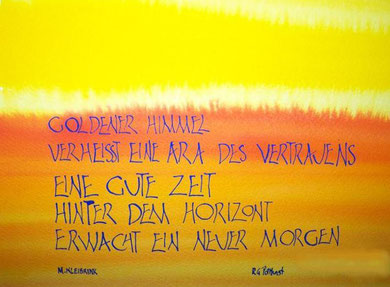 GOLDENER HIMMEL
VERHEISST EINE ÄRA DES VERTRAUENS
EINE GUTE ZEIT
HINTER DEM HORIZONT
ERWACHT EIN NEUER MORGEN
M.KLEIBRINK